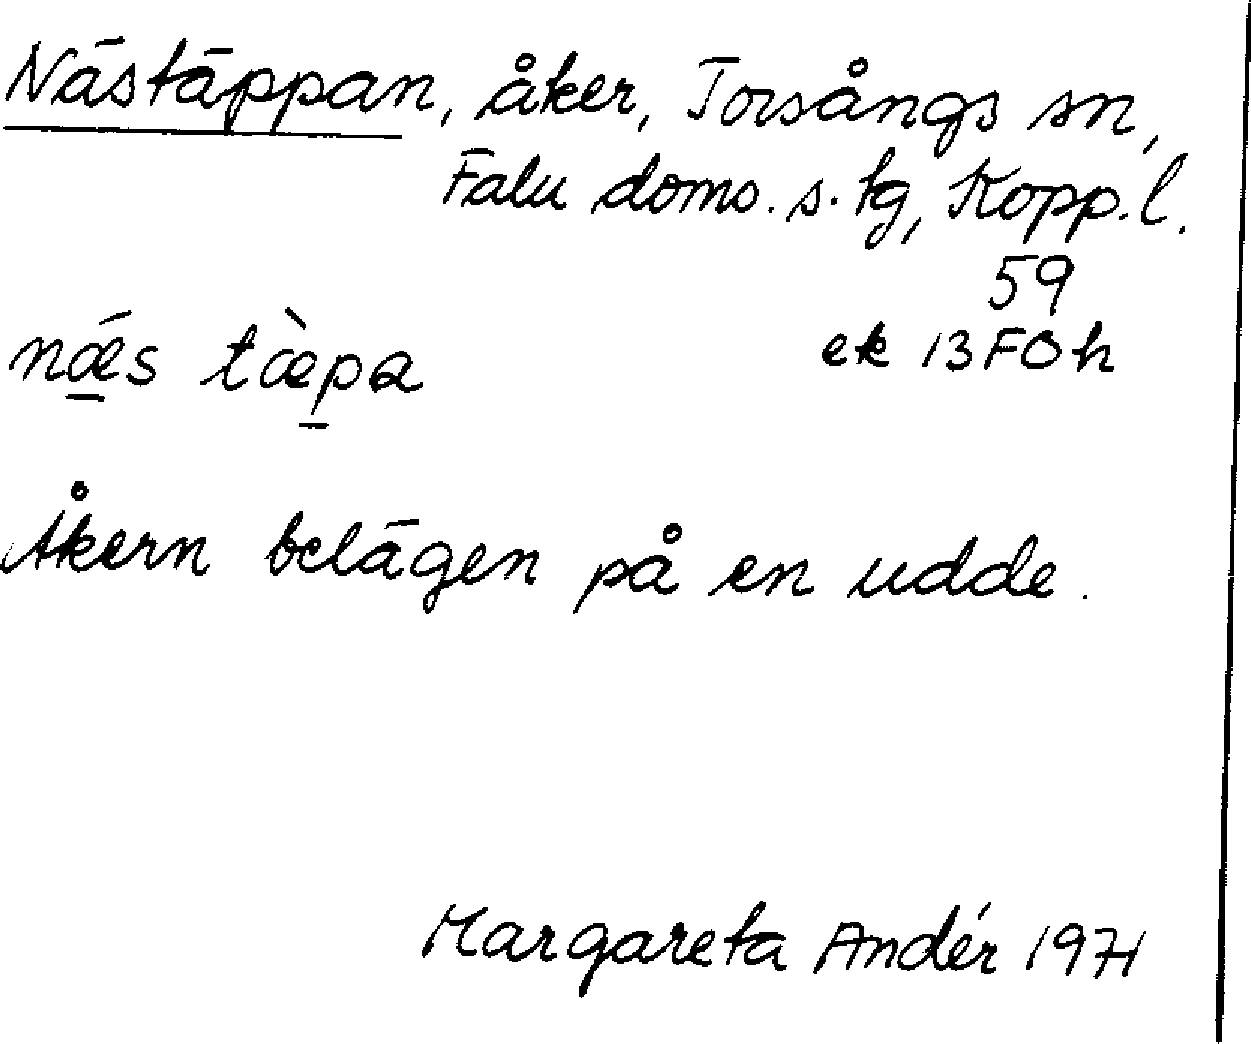 Nästäppan, åker, Torsångs sn,
Falu doms. s. tg, Kopp. l.
59
nǽ̱s tæ̀p̱a
ek 13F0h
Åkern belägen på en udde.
Margareta Andér 1971